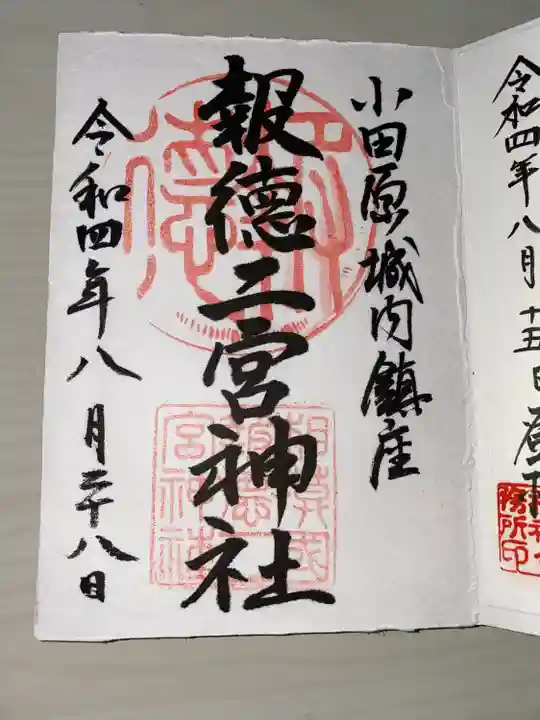 令和四年八月十五日
小田原城内鎮座
報徳二宮神社
令和四年八月二十八日
務所印